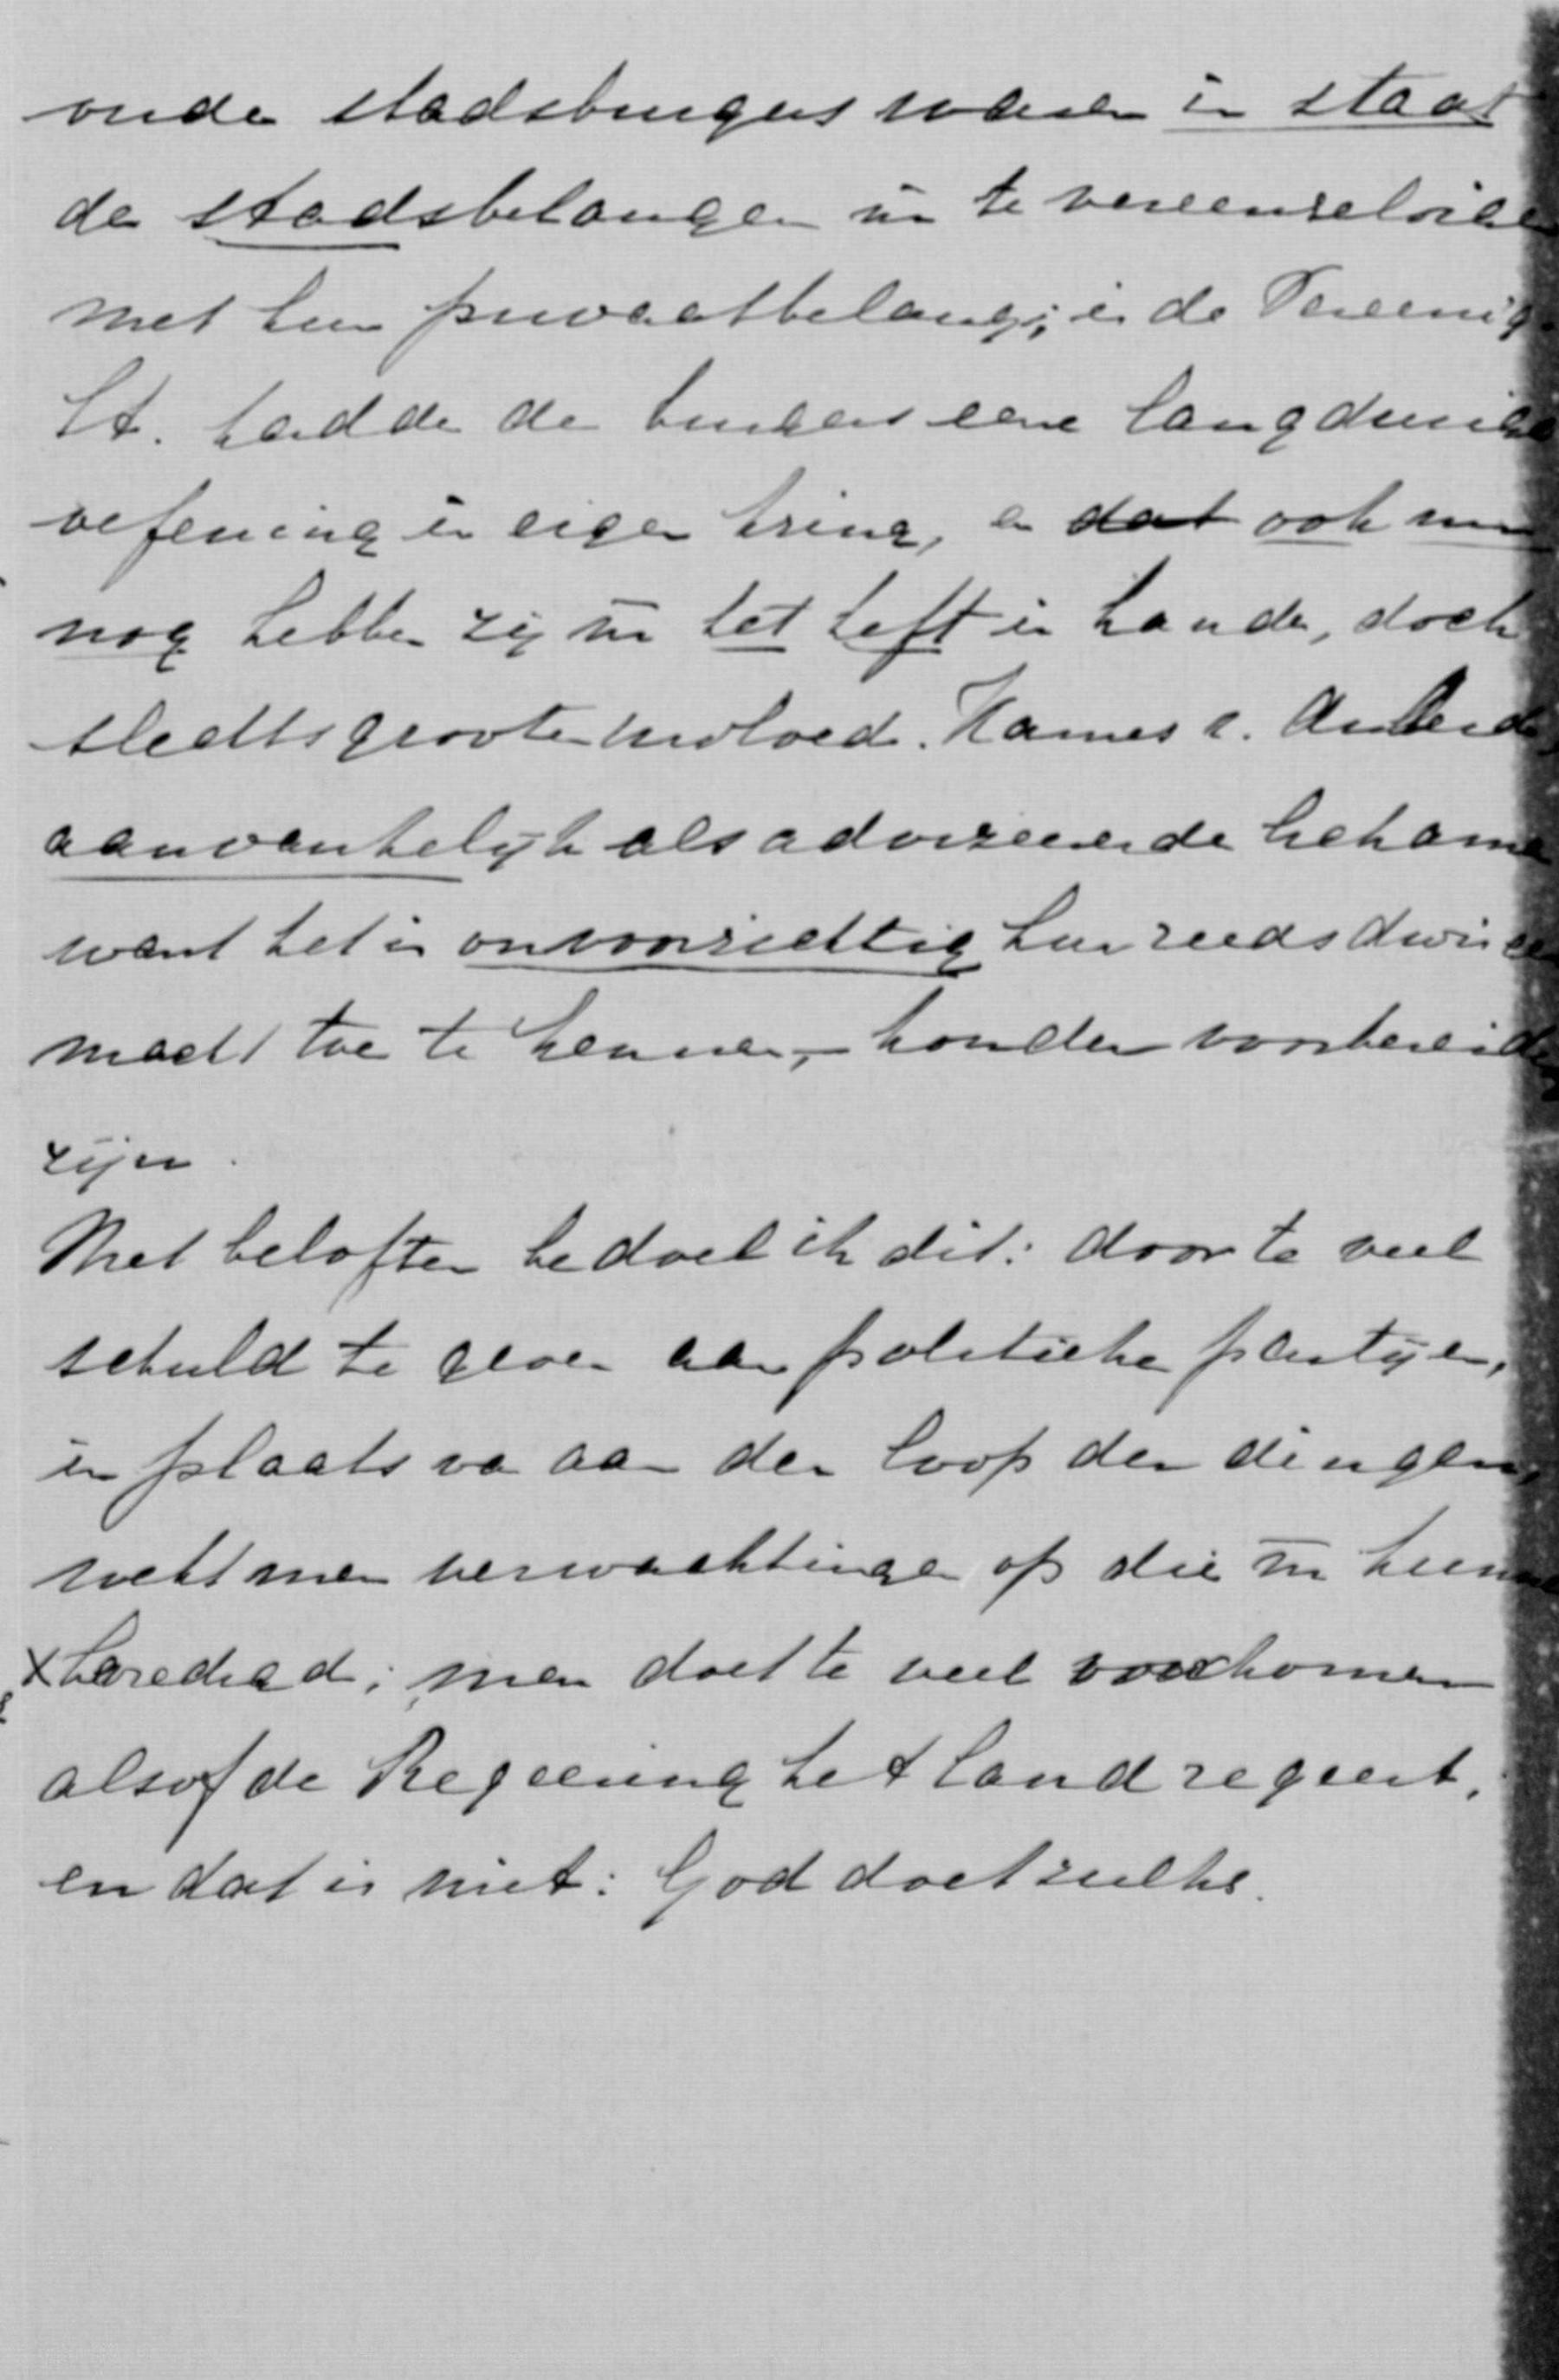 oude stadsburgers waren in staat
de stadsbelangen te vereenzelvigen
met hun privaatbelang; in de Vereenig.
St. hadden de burgers eene langdurige
oefening in eigen kring, en dat ook nu
nog hebben zij het heft in handen, doch
slechts grooten invloed. Kamers v. Arbeid,
aanvankelijk als adviseerende lichamen
want het is onvoorzichtig hun reeds dwingen
macht toe te kennen, zonder voorbereid
zijn.
Met beloften bedoel ik dit: door te veel
schuld te geven aan politieke partijen,
in plaats van aan den loop der dingen,
wekt men verwachtingen op die
men doet te veel voorkomen
alsof de Regeering het land regeert,
en dat is niet: God doet zulks.